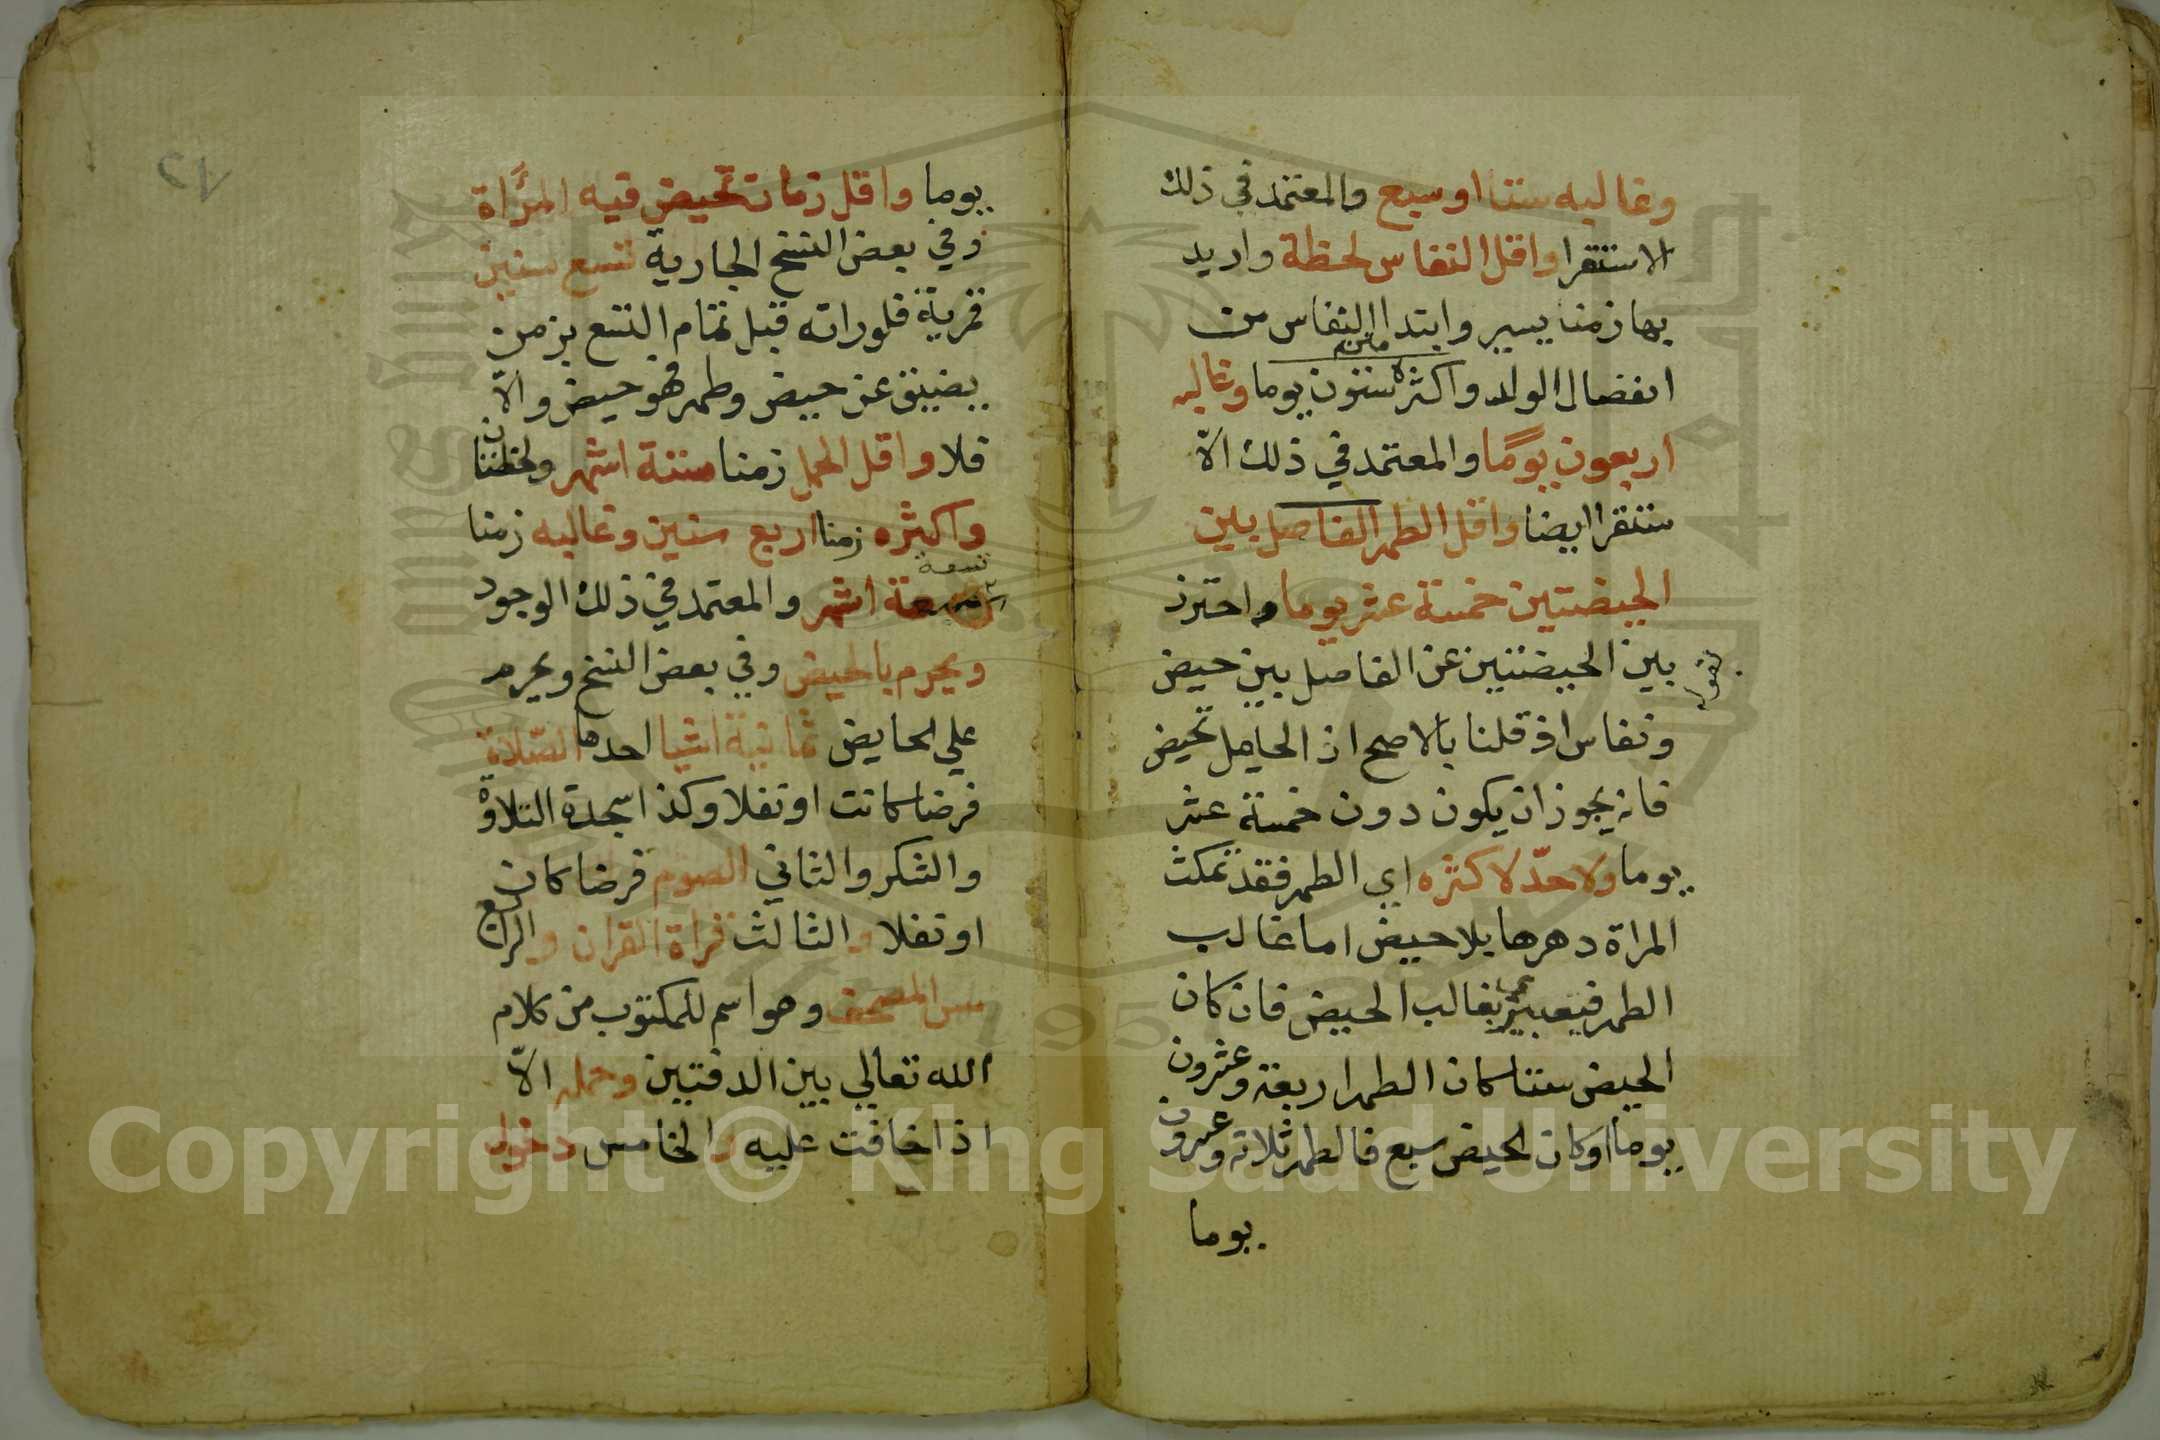 وغالبه ستا او سبع والمعتمد في ذلك
الاستقرا واقل النفاس لحظة واريد
بها زمنا يسير وابتدا النفاس من
انفصال الولد واكثره ستون يوما وغالبه
اربعون يومًا والمعتمد في ذلك الاّ
ستقرا ايضا واقل الطهر الفاصل بين
الحيضتين خمسة عشر يوما واحترز
بين الحيضتين عن الفاصل بين حيض
ونفاس اذ قلنا بالاصح ان الحامل تحيض
فانه يجوز ان يكون دون خمسة عشر
يوما ولا حدّ لاكثره اي الطهر فقد تمكث
المراة دهرها بلا حيض اما غالب
الطهر فيعتبر بغالب الحيض فان كان
الحيض ستا كان الطهر اربعة وعشرون
يوما او كان الحيض سبع فالطهر ثلاثة وعشرون
يوما
يوما واقل زمان تحيض فيه المرأة
وفي بعض النسخ الجارية تسع سنين
قمرية فلو راته قبل تمام التسع بزمن
يضيق عن حيض وطهر فهو حيض والاّ
فلا واقل الحمل زمنا ستة اشهر ولحظتان
واكثره زمنا اربع سنين وغالبه زمنا
تسعة
تسعة اشهر والمعتمد في ذلك الوجود
ويحرم بالحيض وفي بعض النسخ ويحرم
علي الحايض ثمانية اشيا احدها الصّلاة
فرضا كانت او نفلا وكذا سجدة التلاوة
والشكر والثاني الصوم فرضا كان
او نفلا والثالث قراة القران والرابع
مس المصحف وهو اسم للمكتوب من كلام
الله تعالي بين الدفتين وحمله الاّ
اذا خافت عليه والخامس دخول
Copyright © King Saud University
195